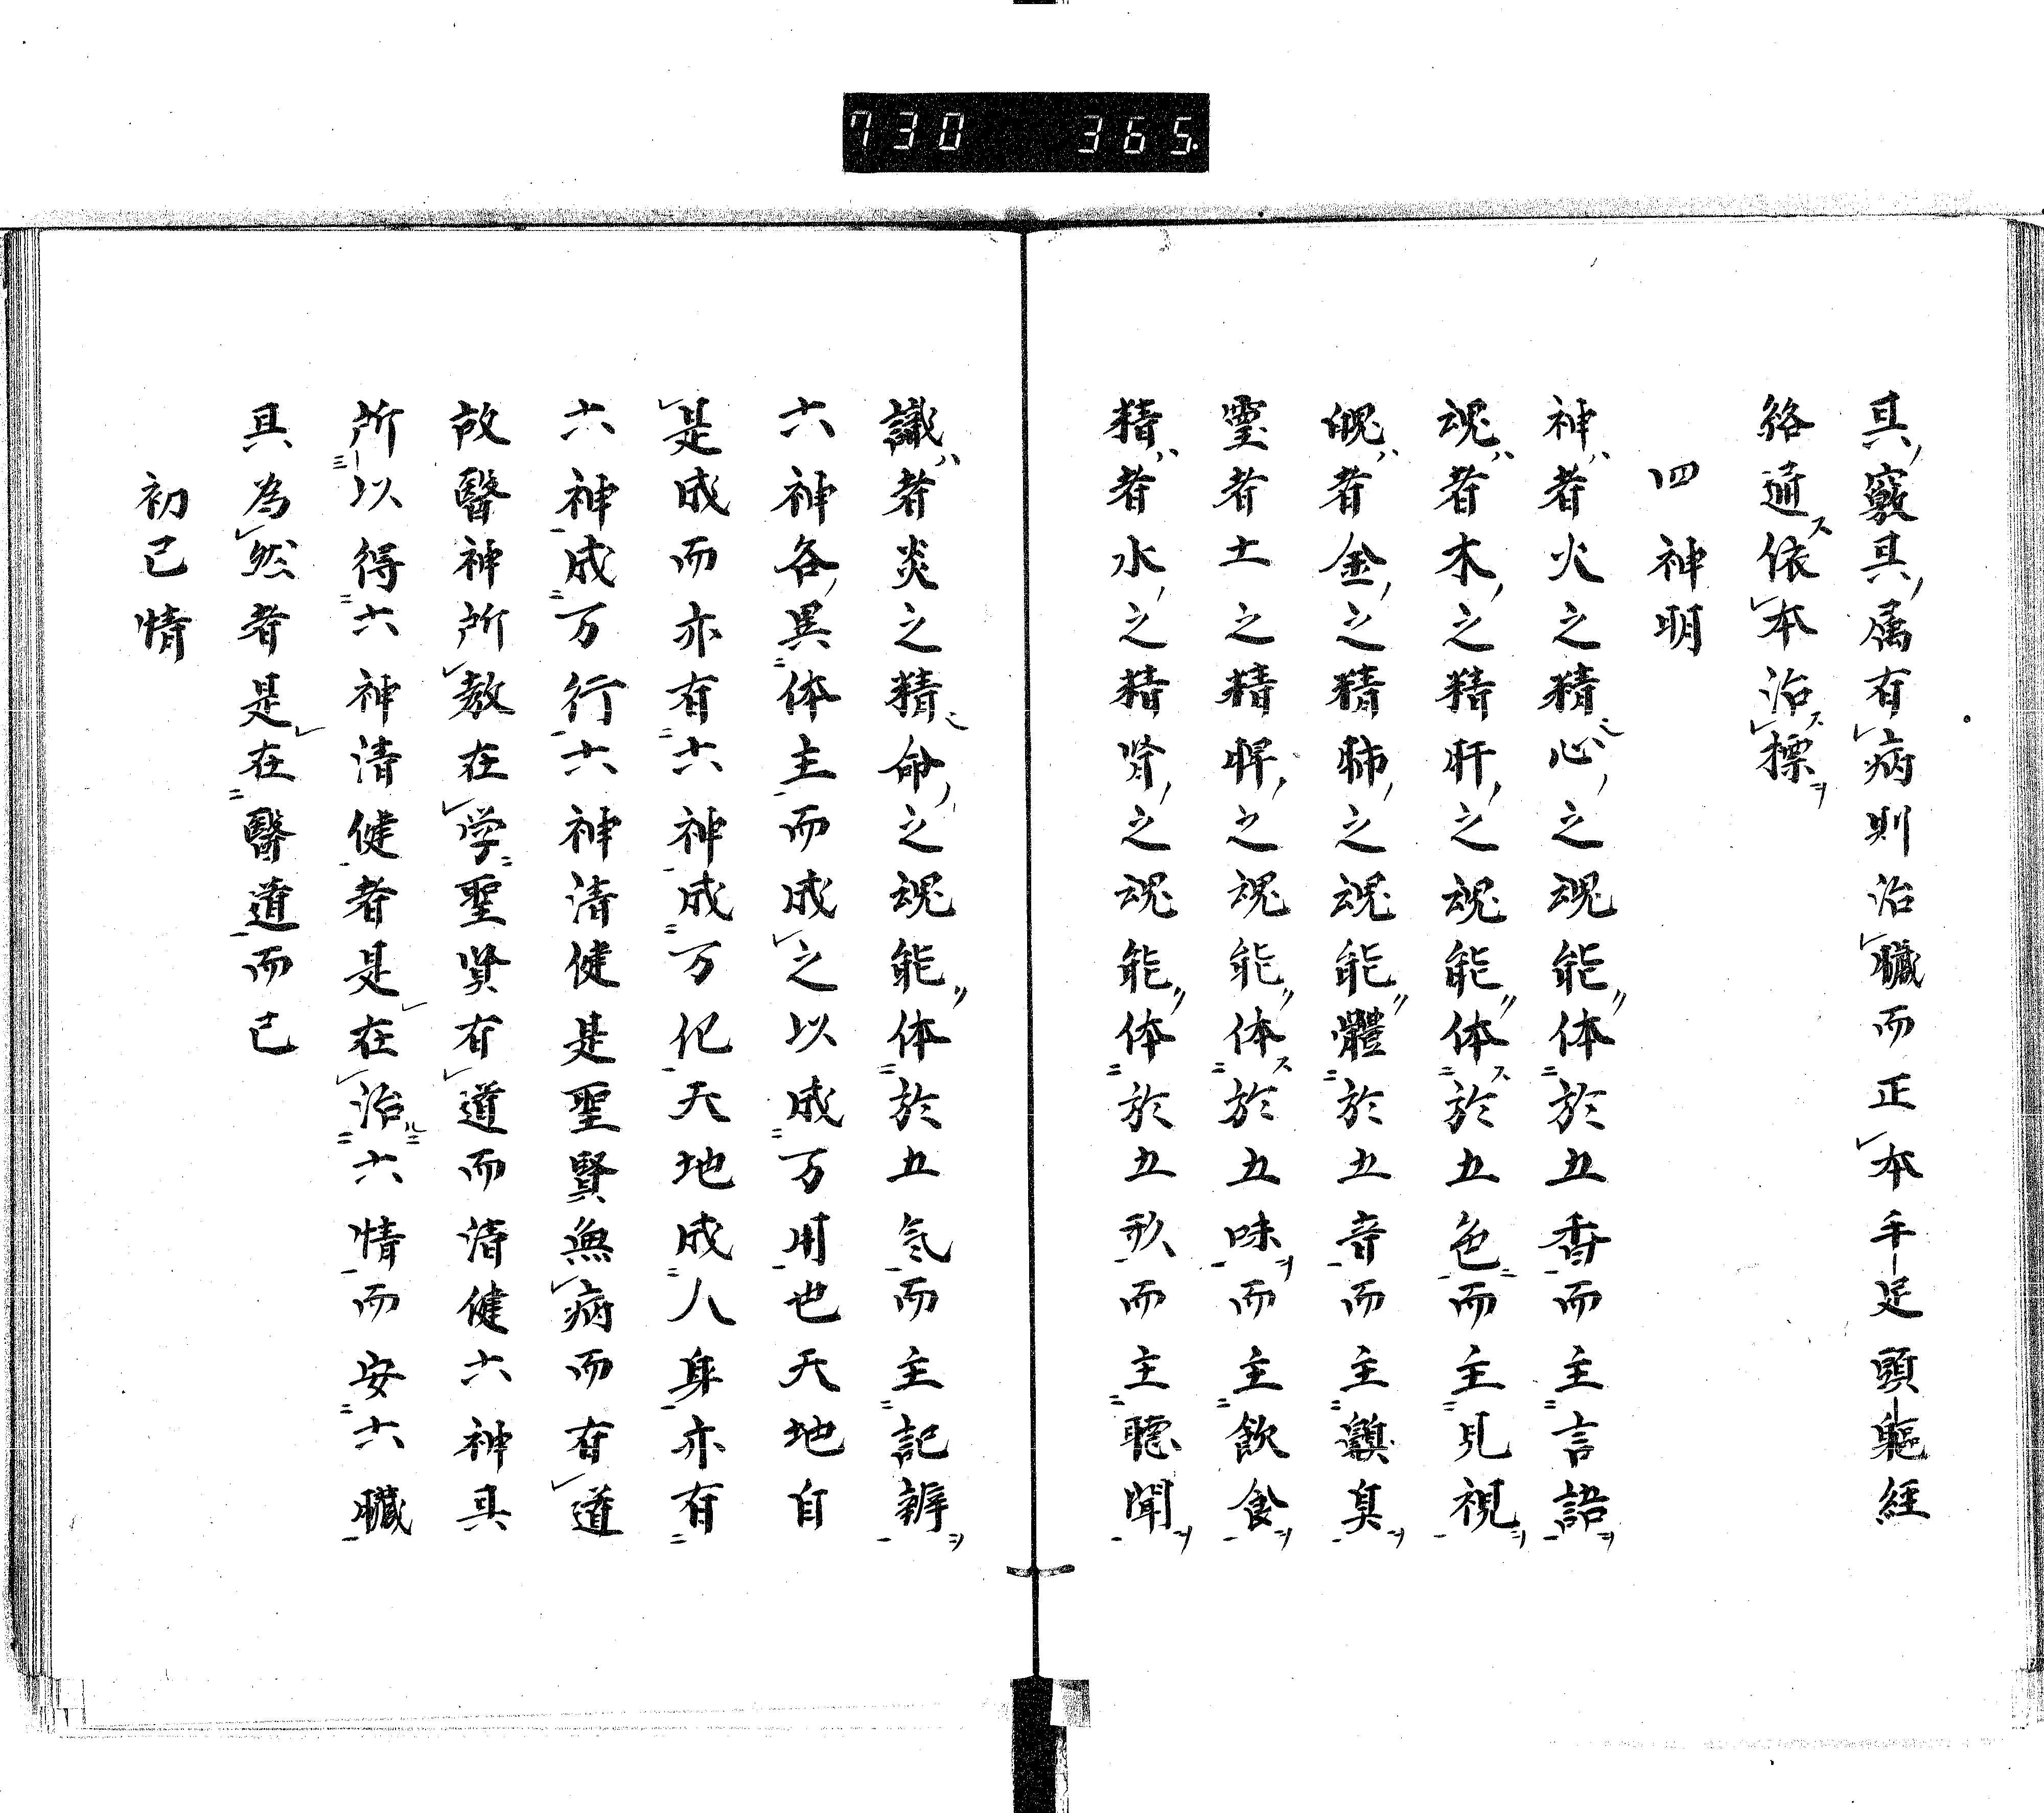 730 365
其竅其属有病則治臓而正本手足頭軀経
絡通依本治標
四神明
神者火之精心之魂能体於五香而主言語
魂者木之精肝之魂能体於五色而主見視
魄者金之精肺之魂能體於五音而主齅臭
霊者土之精脾之魂能体於五味而主飲食
精者水之精腎之魂能体於五形而主聴聞
識者炎之精命之魂能体於五気而主記辨
六神各異体主而成之以成万用也天地自
是成而亦有六神成万化天地成人身亦有
六神成万行六神清健是聖賢無病而有道
故醫神所教在学聖賢有道而清健六神具
所以得六神清健者是在治六情而安六臓
具為然者是在醫道而已
初己情